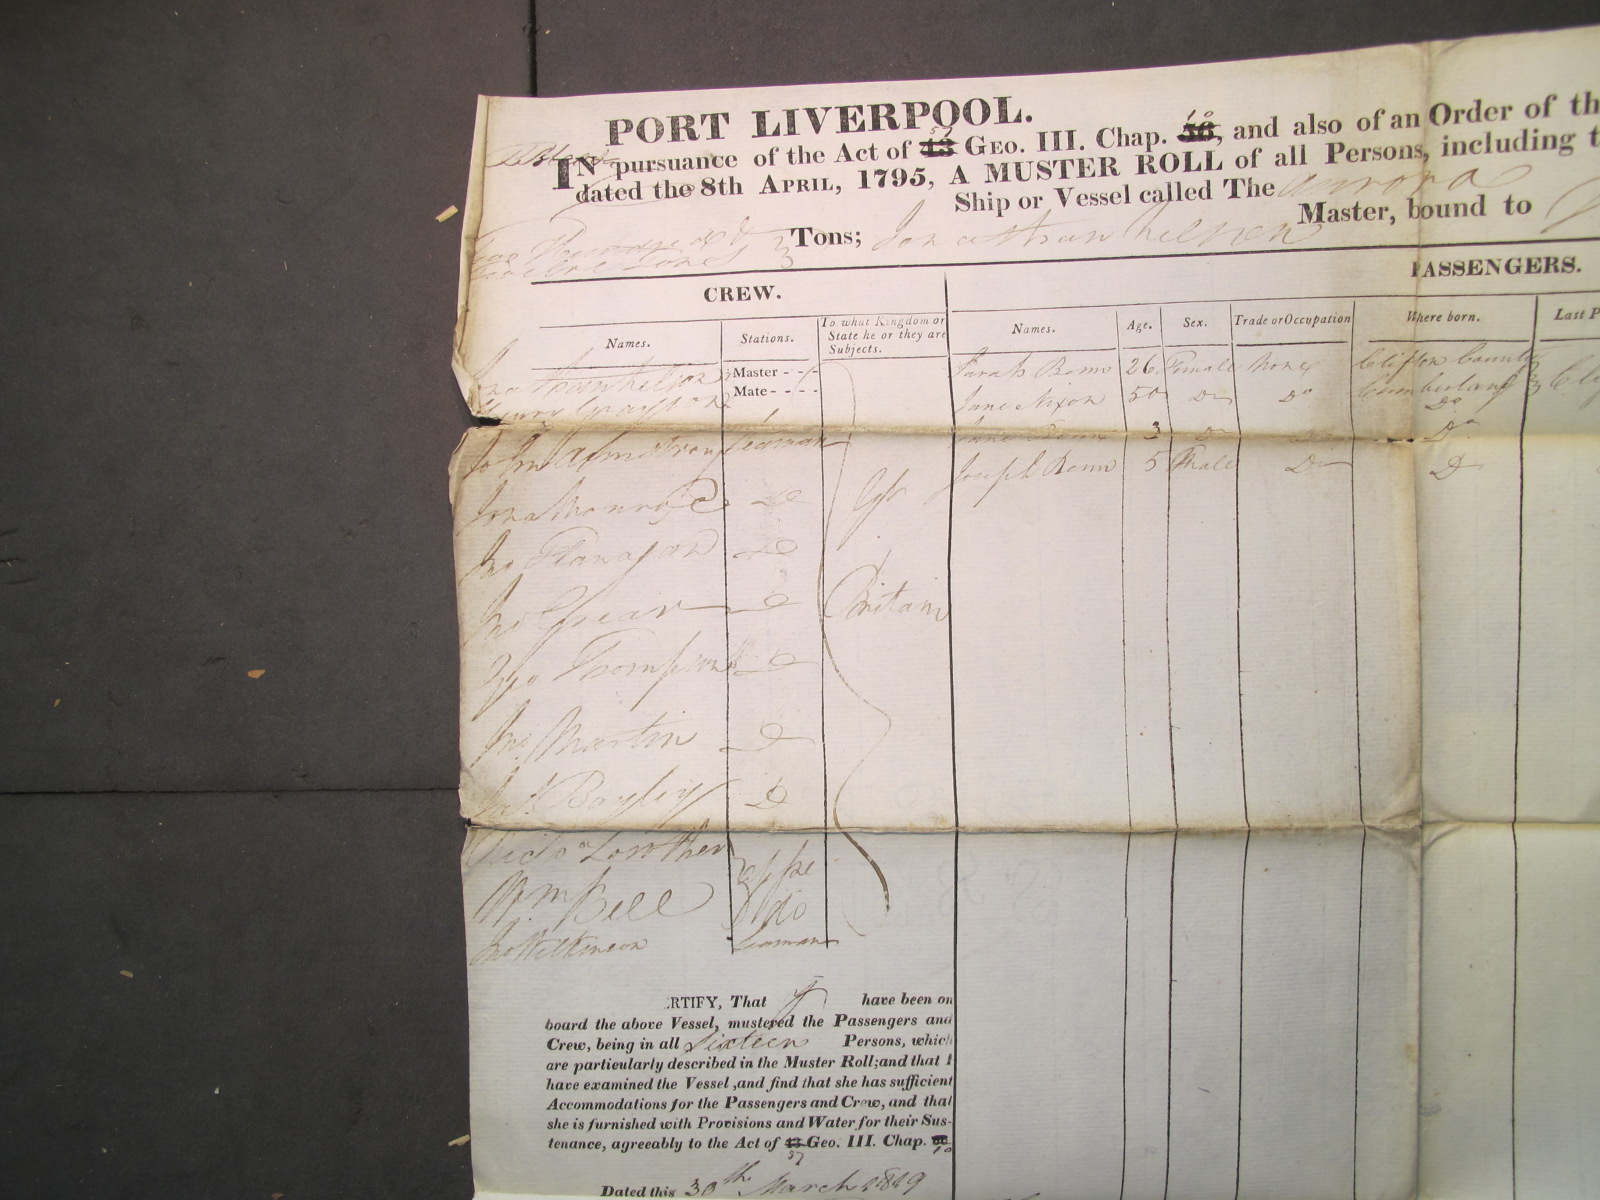 PORT LIVERPOOL.
IN pursuance of the Act of 43 57 Geo. III. Chap. 56, 10 and also of an Order of th
dated the 8th April, 1795, A MUSTER ROLL of all Persons, including t
Ship or Vessel called The Aurora
Tons; Jonathan Master, bound to
CREW.
PASSENGERS.
Names. Stations. To what Kingdom or State he or they are Subjects. Names. Age. Sex. Trade or Occupation Where born. Last P
Master - - - Sarah 26 Female None Clifton County
Mate - - - - Jane Nixon 50 Do Do Cumberland Do
John Armstrong Seaman 3 Do Do Do
Jona Monroe Do Gt Joseph 5 Male Do Do
Jno Flanagan Do
Jno Do Britain
Geo Thompson Do
Jno Martin Do
Bayley Do
Lowther appe
Wm Bell do
Jno Wilkinson Seaman
RTIFY, That I have been on
board the above Vessel, mustered the Passengers and
Crew, being in all Sixteen Persons, which
are particularly described in the Muster Roll; and that I
have examined the Vessel, and find that she has sufficient
Accommodations for the Passengers and Crew, and that
she is furnished with Provisions and Water for their Sus-
tenance, agreeably to the Act of 43 57 Geo. III. Chap. 56 10
Dated this 30th March 1819